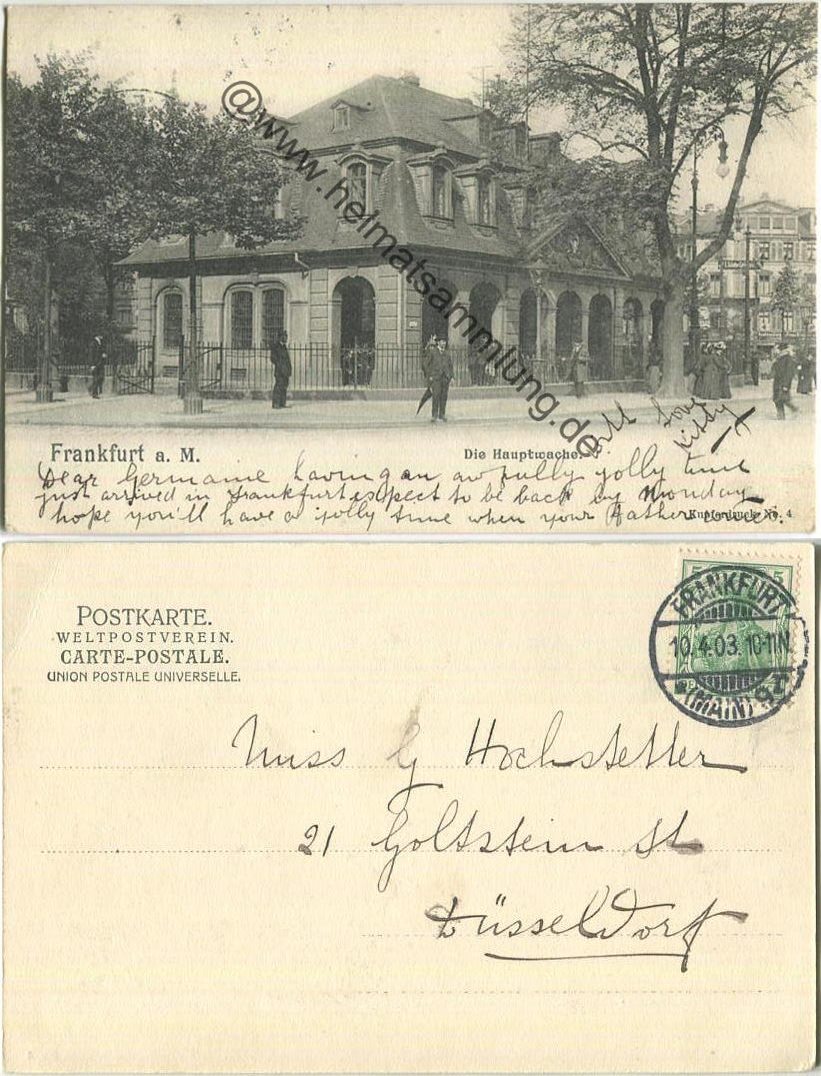 @www.heimatsammlung.de
Frankfurt a. M.
Die Hauptwache.
with love
Kitty
Dear Germaine having an awfully jolly time
just arrived in Frankfurt expect to be back by Monday
hope you'll have a jolly time when your Father
Kupferdruck No. 4
POSTKARTE.
WELTPOSTVEREIN.
CARTE-POSTALE.
UNION POSTALE UNIVERSELLE.
5 5
FRANKFURT
10.4.03. 10-11N
(MAIN)
Miss G Hochstetter
21 Goltstein St
Düsseldorf